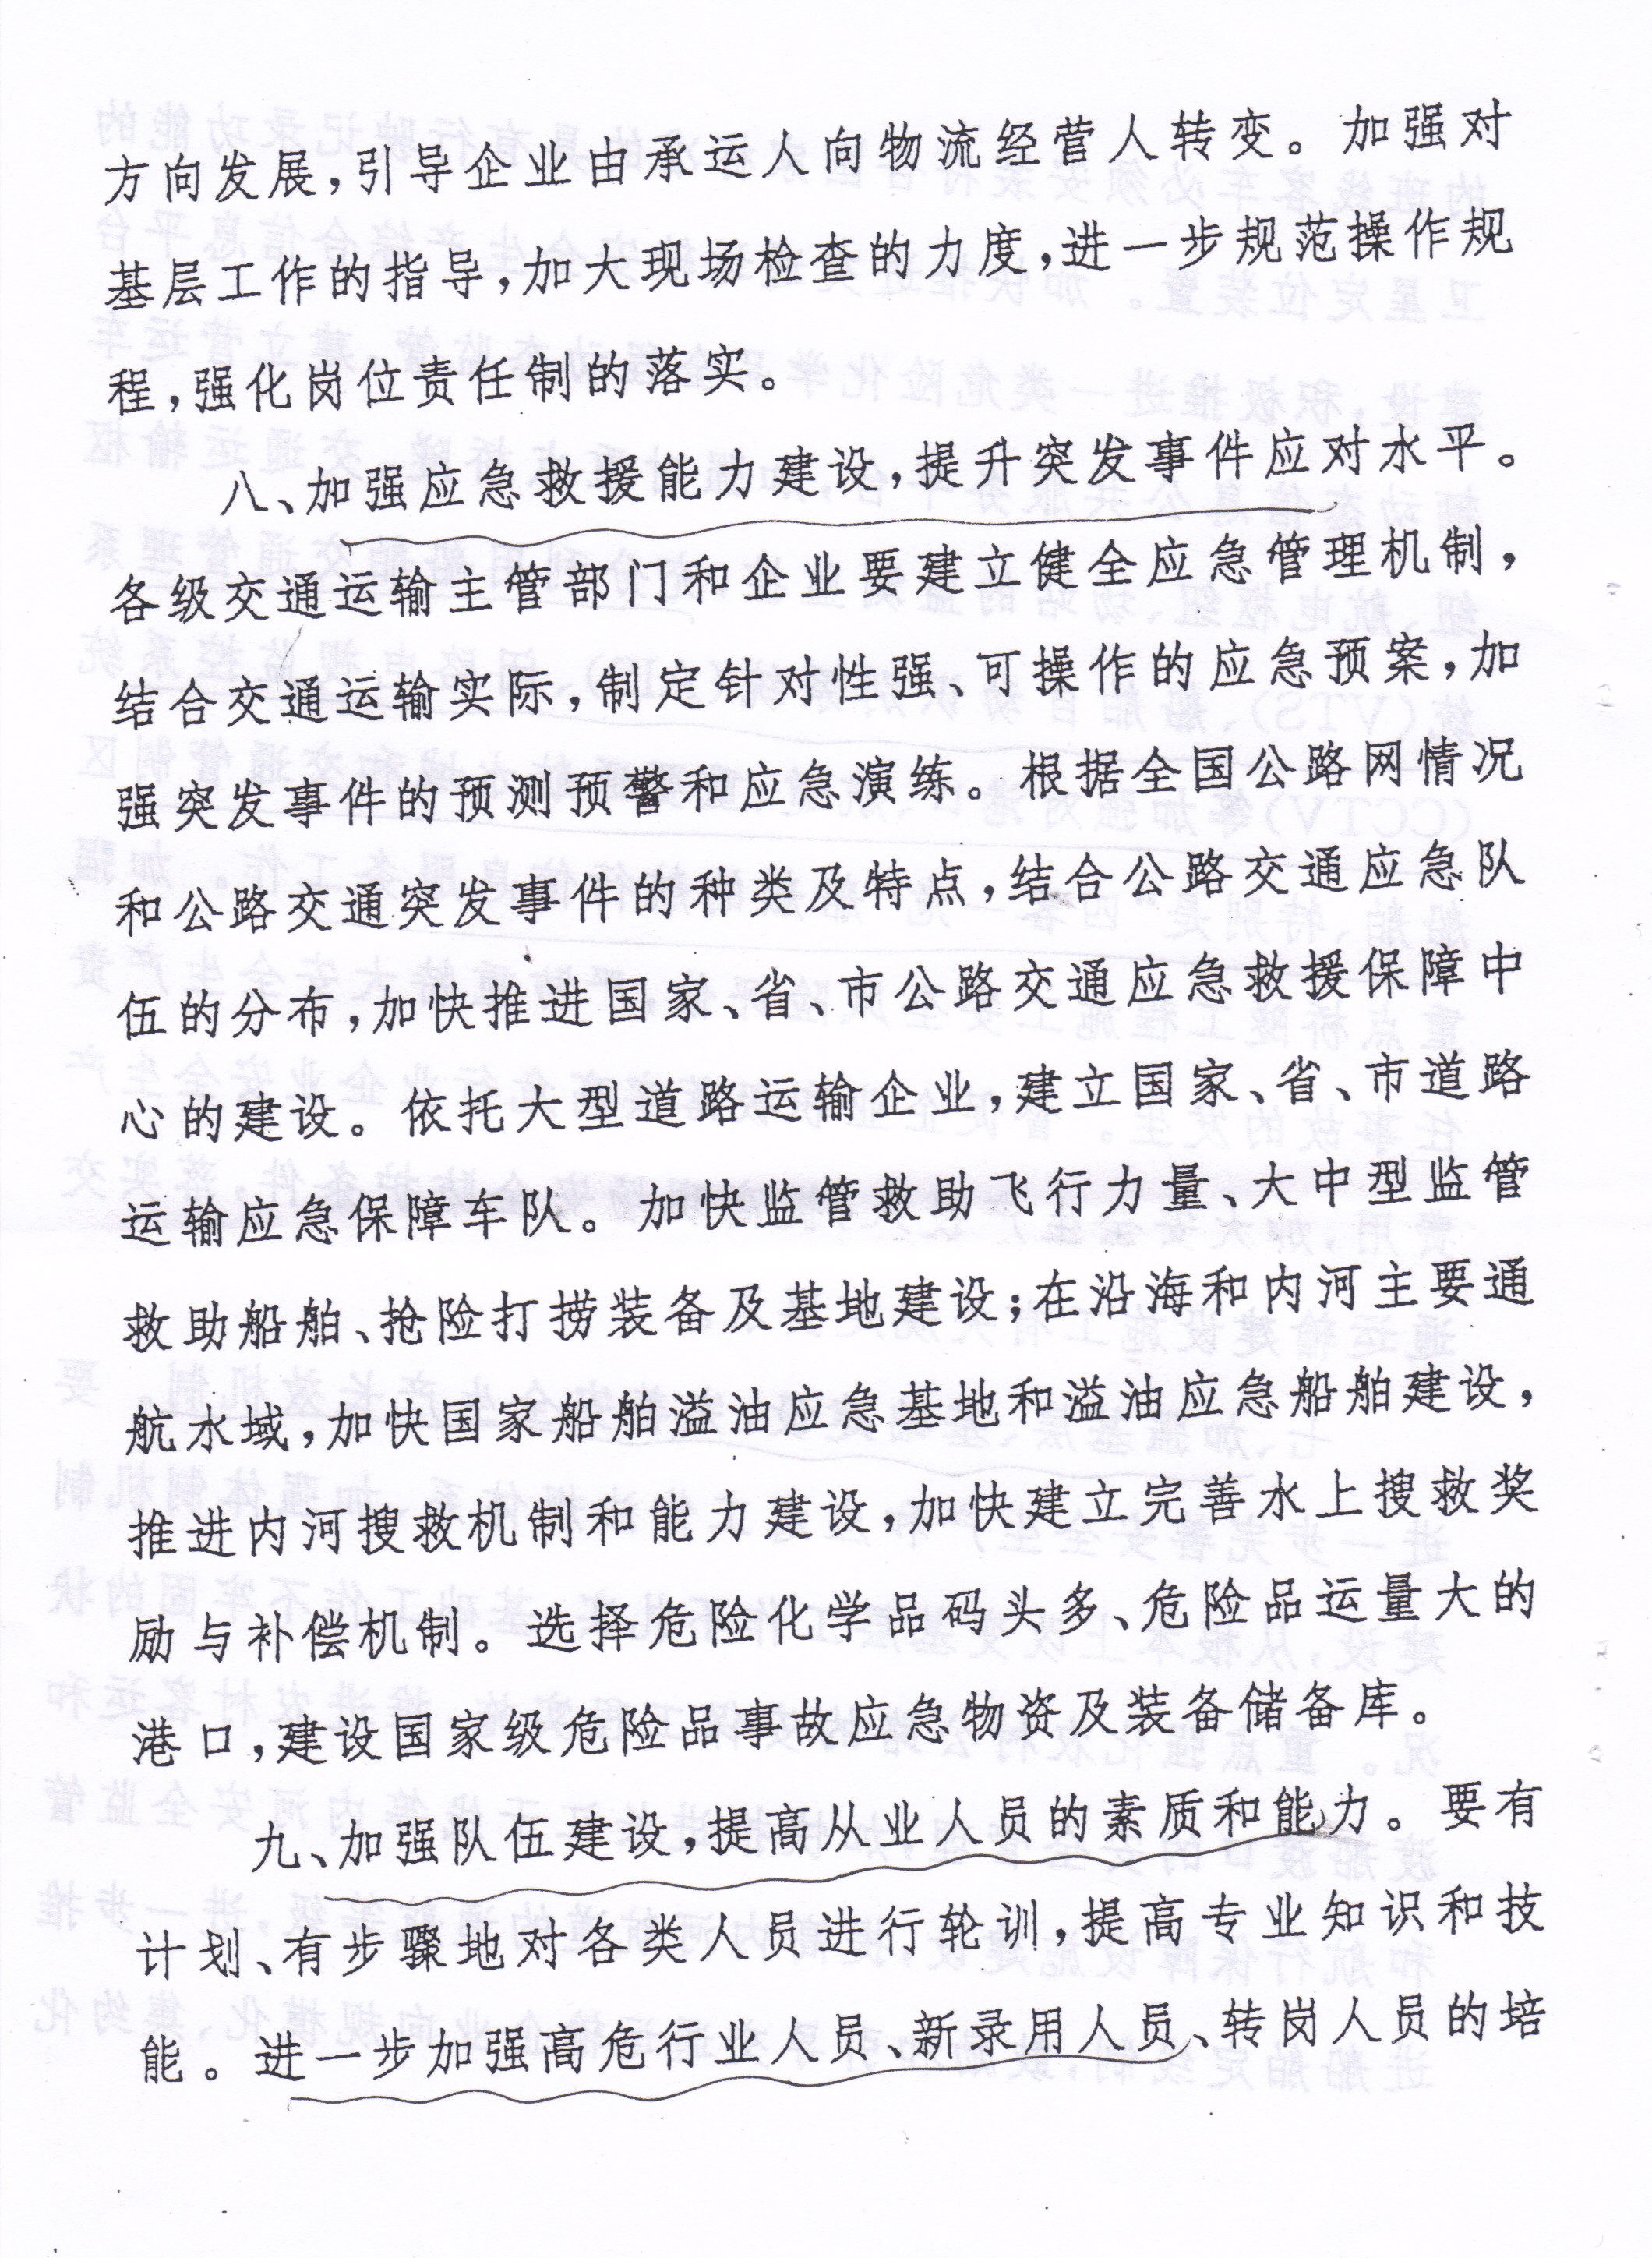 方向发展,引导企业由承运人向物流经营人转变。加强对
基层工作的指导,加大现场检查的力度,进一步规范操作规
程,强化岗位责任制的落实。
八、加强应急救援能力建设,提升突发事件应对水平。
各级交通运输主管部门和企业要建立健全应急管理机制,
结合交通运输实际,制定针对性强、可操作的应急预案,加
强突发事件的预测预警和应急演练。根据全国公路网情况
和公路交通突发事件的种类及特点,结合公路交通应急队
伍的分布,加快推进国家、省、市公路交通应急救援保障中
心的建设。依托大型道路运输企业,建立国家、省、市道路
运输应急保障车队。加快监管救助飞行力量、大中型监管
救助船舶、抢险打捞装备及基地建设;在沿海和内河主要通
航水域,加快国家船舶溢油应急基地和溢油应急船舶建设,
推进内河搜救机制和能力建设,加快建立完善水上搜救奖
励与补偿机制。选择危险化学品码头多、危险品运量大的
港口,建设国家级危险品事故应急物资及装备储备库。
九、加强队伍建设,提高从业人员的素质和能力。要有
计划、有步骤地对各类人员进行轮训,提高专业知识和技
能。进一步加强高危行业人员、新录用人员、转岗人员的培